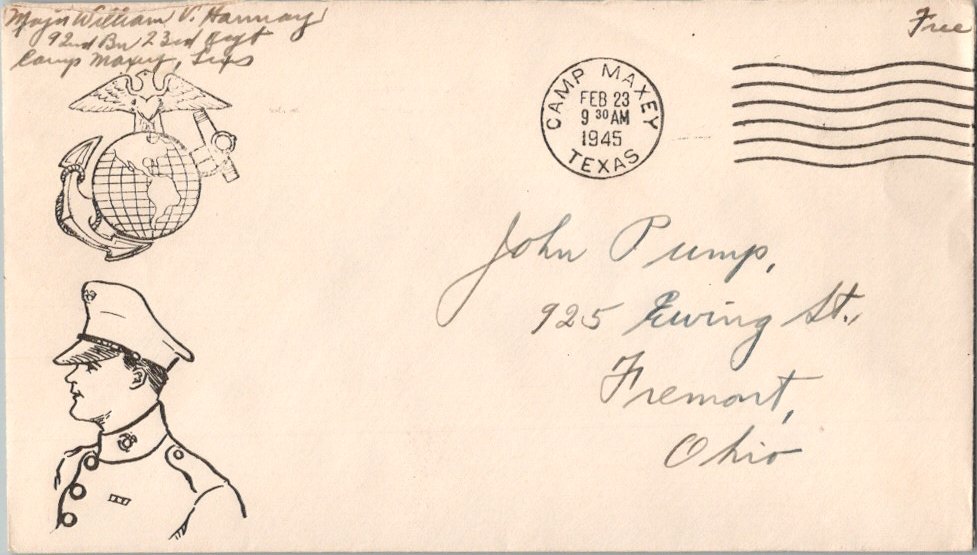 Major William V. Hannay
92nd Bn 23rd Regt
Camp Maxey, Texas
Free
CAMP MAXEY
FEB 23
9 30 AM
1945
TEXAS
John Pump,
925 Ewing St.,
Fremont,
Ohio